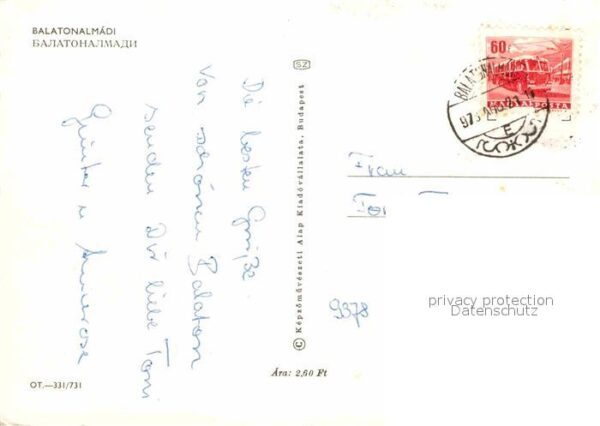 BALATONALMÁDI
БАЛАТОНАЛМАДИ
Die besten Grüße
Vom schönen Balaton
senden Dir liebe Toni
Günter u. Annerose
OT.—331/731
SZ
© Képzőművészeti Alap Kiadóvállalata, Budapest
Ára: 2,60 Ft
60f
MAGYAR POSTA
Frau
9378
privacy protection
Datenschutz